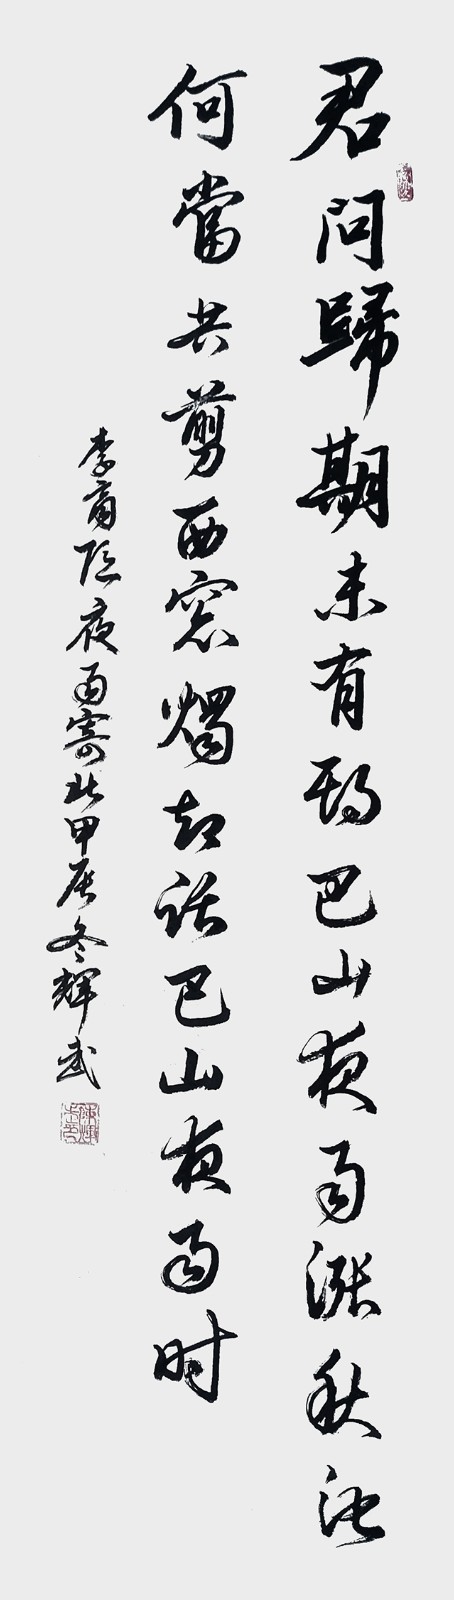 君問歸期未有期巴山夜雨漲秋池
何當共剪西窓燭却話巴山夜雨时
李商隐夜雨寄北甲辰冬輝武
陳輝武印